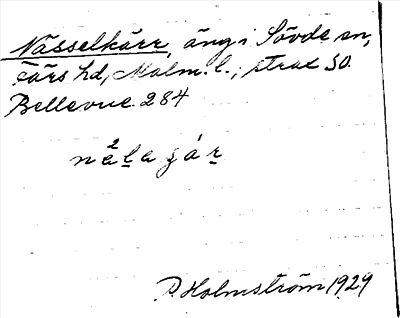 Nässelkärr, äng i Sövde sn,
Färs hd, Malm. l.; strax SO.
Bellevue 284
P. Holmström 1929